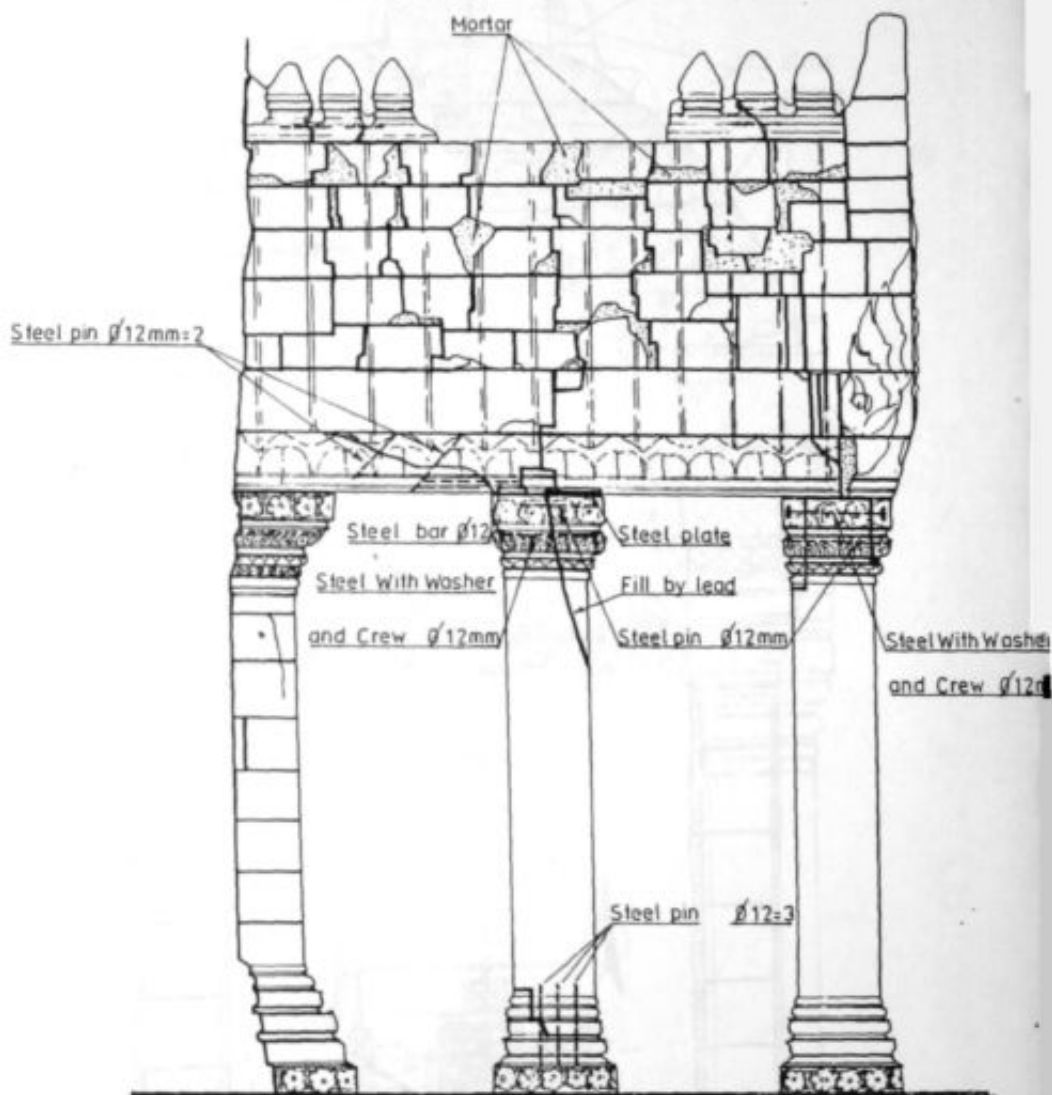 Mortar
Steel pin Ø12mm=2
Steel bar Ø12
Steel plate
Steel With Washer
and Crew Ø12mm
Fill by lead
Steel pin Ø12mm
Steel With Washer
and Crew Ø12m
Steel pin Ø12=3